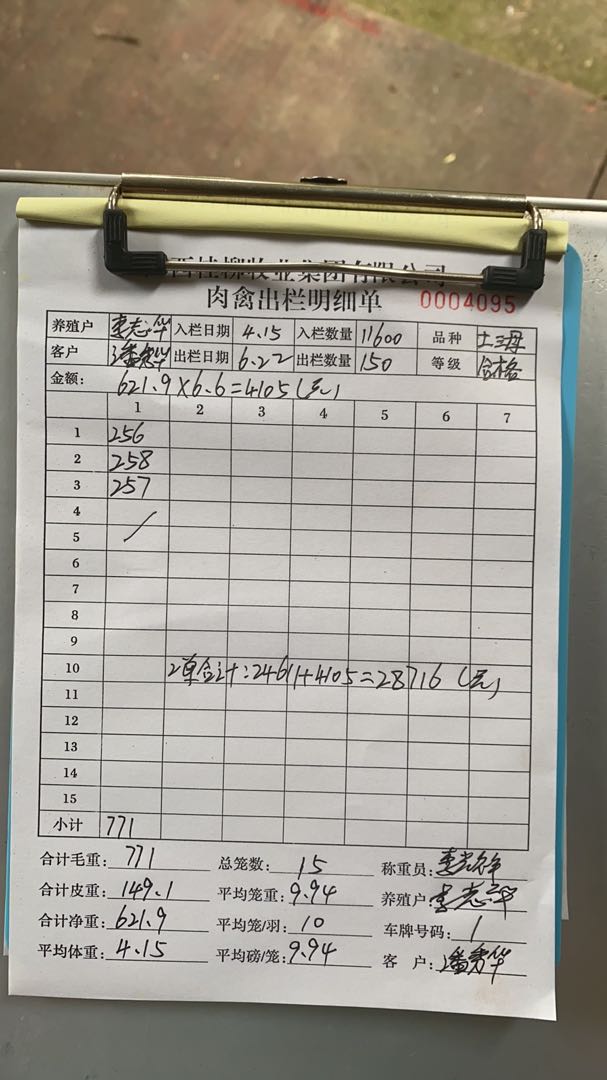 西桂柳牧业集团有限公司
肉禽出栏明细单 0004095
养殖户 李志华 入栏日期 4.15 入栏数量 11600 品种 土二母
客户 潘秀华 出栏日期 6.22 出栏数量 150 等级 合格
金额: 621.9×6.6=4105(元)
1 2 3 4 5 6 7
1 256
2 258
3 257
4
5
6
7
8
9
10 2单合计:24611+4105=28716(元)
11
12
13
14
15
小计 771
合计毛重: 771 总笼数: 15 称重员:
合计皮重: 149.1 平均笼重: 9.94 养殖户 李志华
合计净重: 621.9 平均笼/羽: 10 车牌号码: 1
平均体重: 4.15 平均磅/笼: 9.94 客 户: 潘秀华